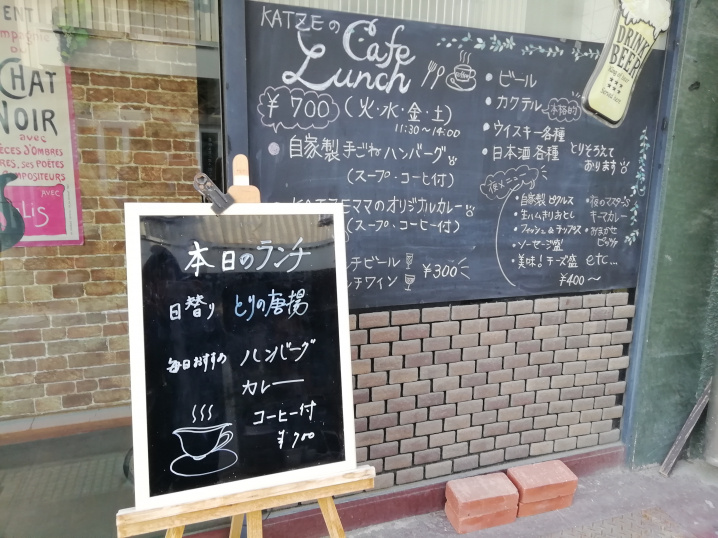 ENT
mpagnie
du
CHAT
NOIR
avec
PIÈCES D'OMBRES
ES POÈTES
COMPOSITEURS
AVEC
lis
KATZEの
Cafe
Lunch
¥700 (火・水・金・土)
11:30〜14:00
自家製 手ごねハンバーグ
(スープ・コーヒー付)
ママのオリジナルカレー
(スープ・コーヒー付)
チビール
チワイン
¥300
・ビール
・カクテル 本格的
・ウイスキー各種
・日本酒各種
とりそろえて
おります
夜メニュー
・自家製ピクルス
・生ハムきりおとし
・フィッシュ&チップス
・ソーセージ盛
・美味!チーズ盛
・夜のマスターS
キーマカレー
・おまかせ
ピッツァ
etc...
¥400〜
DRINK
BEER
本日のランチ
日替り とりの唐揚
毎日おすすめ ハンバーグ
カレー
コーヒー付
¥700